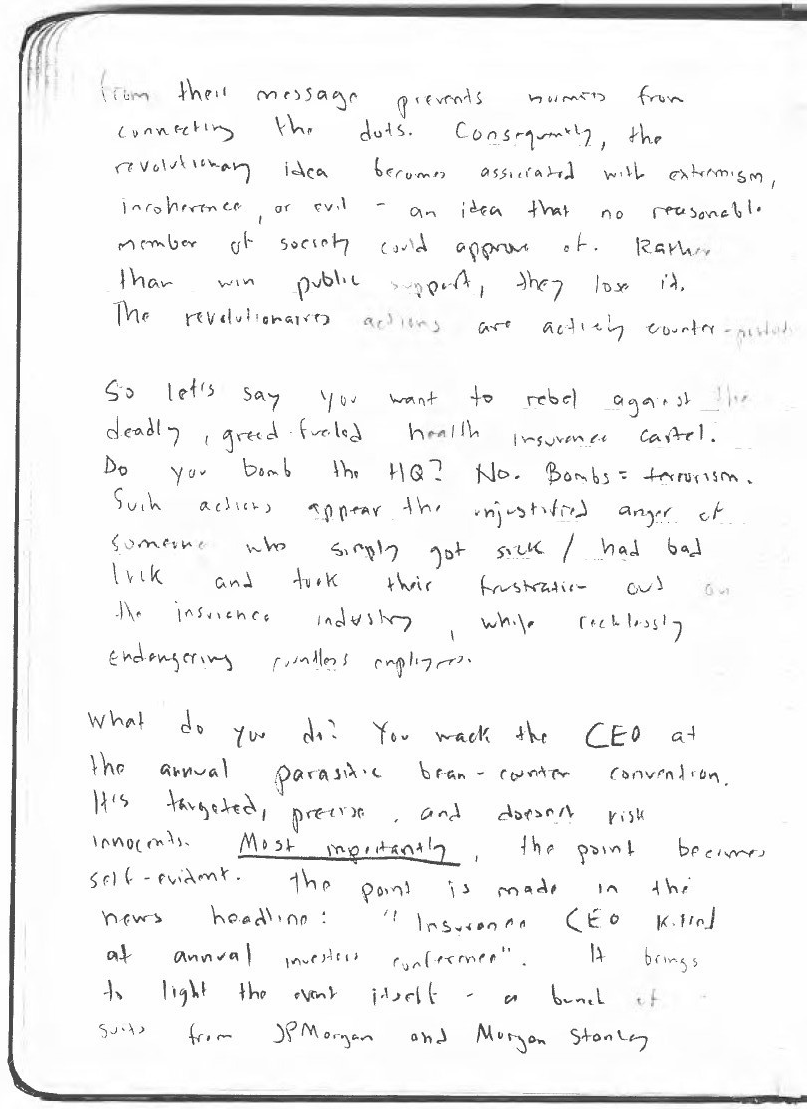 from their message prevents normies from
connecting the dots. Consequently, the
revolutionary idea becomes associated with extremism,
incoherence, or evil - an idea that no reasonable
member of society could approve of. Rather
than win public support, they lose it.
The revolutionaires actions are actively counter-
So let's say you want to rebel against the
deadly, greed-fueled health insurance cartel.
Do you bomb the HQ? No. Bombs = terrorism.
Such actions appear the unjustified anger of
someone who simply got sick / had bad
luck and took their frustration out on
the insurance industry, while recklessly
endangering countless employees.
What do you do? You wack the CEO at
the annual parasitic bean-counter convention.
It's targeted, precise, and doesn't risk
innocents. Most importantly, the point becomes
self-evident. The point is made in the
news headline: "Insurance CEO killed
at annual investors conference". It brings
to light the event itself - a bunch of
suits from JPMorgan and Morgan Stanley